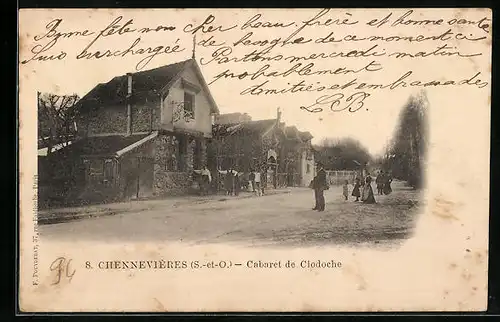 Bonne fête mon cher beau frère et bonne santé
Suis surchargée de besogne de ce moment ci
Partons mercredi matin
probablement
Amitiés et embrassades
L B.
F. POUYDEBAT, 37, rue
Paris
94
8. CHENNEVIÈRES (S.-et-O.) — Cabaret de Clodoche